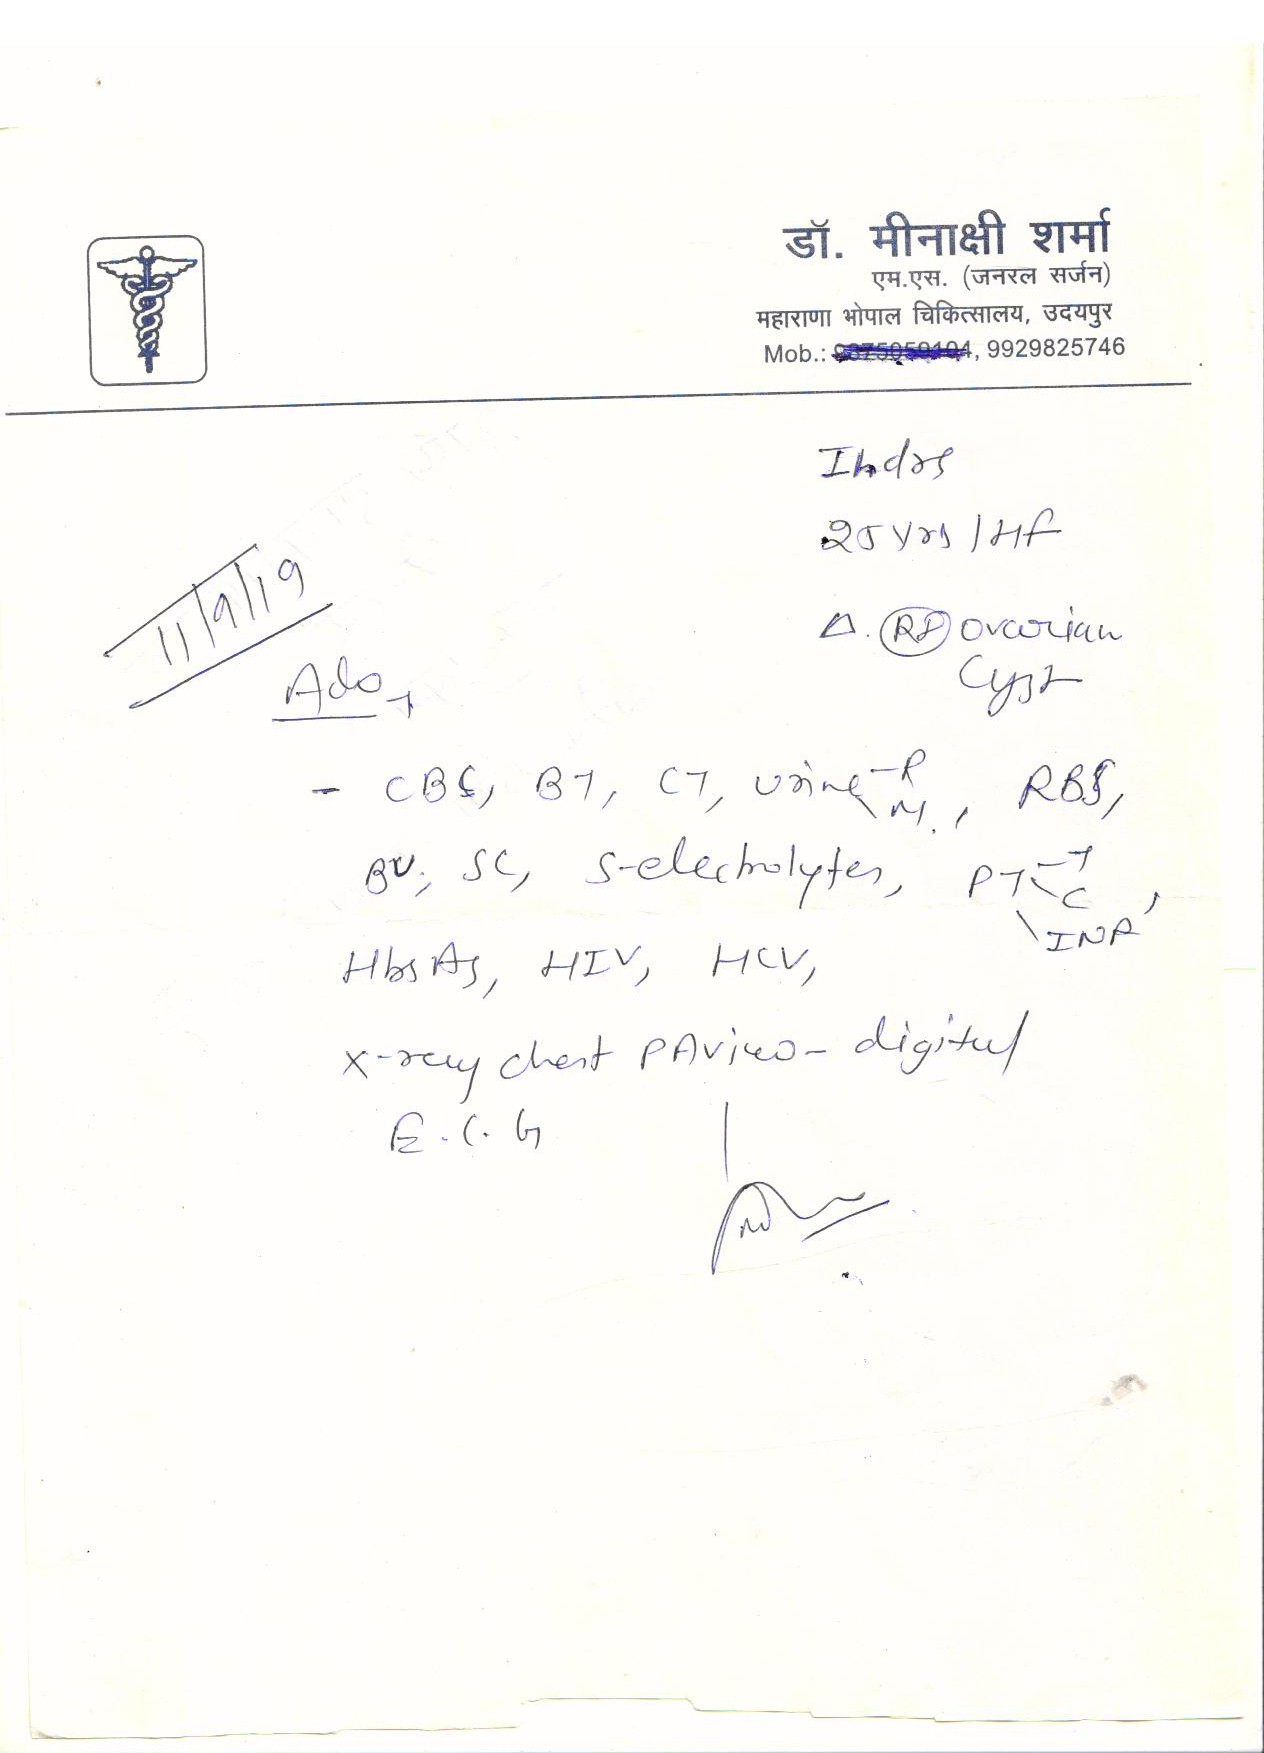 डॉ. मीनाक्षी शर्मा
एम.एस. (जनरल सर्जन)
महाराणा भोपाल चिकित्सालय, उदयपुर
Mob.: 9929825746
25 yrs / Hf
11/9/19
Δ. Rt ovarian
Cyst
Adv
- CBC, BT, CT, Urine - R
M.,
RBS,
BU, SC, S-electrolytes, PT - T
C
INR,
HbsAg, HIV, HCV,
X-ray chest PA view - digital
E.C.G